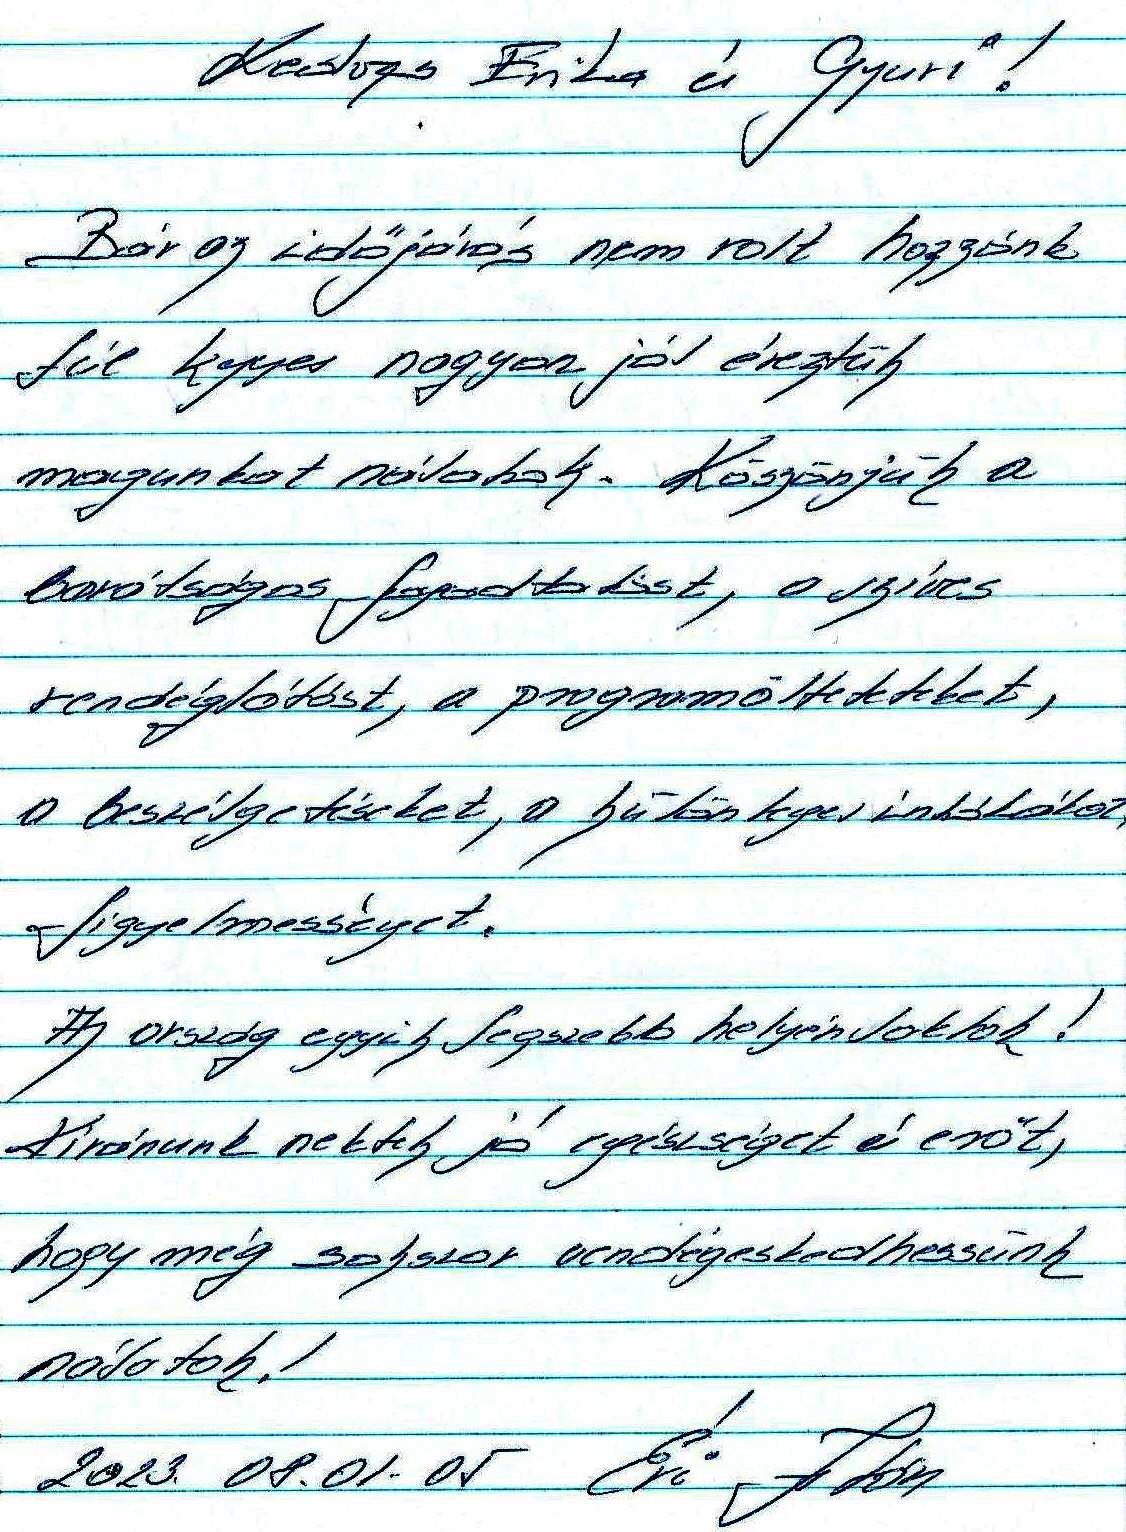 Kedves Erika és Gyuri!
Bár az időjárás nem volt hozzánk
túl kegyes nagyon jól éreztük
magunkat nálatok. Köszönjük a
barátságos fogadtatást, a szíves
vendéglátást, a programötleteket,
a beszélgetéseket, a különleges
figyelmességet.
Az ország egyik legszebb helyén laktok!
Kívánunk nektek jó egészséget és erőt,
hogy még sokszor vendégeskedhessünk
nálatok!
2023. 08.01-05 Évi